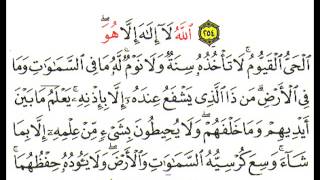 ٢٥٤ اللَّهُ لَآ إِلَٰهَ إِلَّا هُوَ ۚ
الْحَيُّ الْقَيُّومُ ۚ لَا تَأْخُذُهُ سِنَةٌ وَلَا نَوْمٌ ۚ لَّهُ مَا فِي السَّمَٰوَٰتِ وَمَا
فِي الْأَرْضِ ۗ مَن ذَا الَّذِي يَشْفَعُ عِندَهُ إِلَّا بِإِذْنِهِ ۚ يَعْلَمُ مَا بَيْنَ
أَيْدِيهِمْ وَمَا خَلْفَهُمْ ۖ وَلَا يُحِيطُونَ بِشَيْءٍ مِّنْ عِلْمِهِ إِلَّا بِمَا
شَآءَ ۚ وَسِعَ كُرْسِيُّهُ السَّمَٰوَٰتِ وَالْأَرْضَ ۖ وَلَا يَئُودُهُ حِفْظُهُمَا ۚ